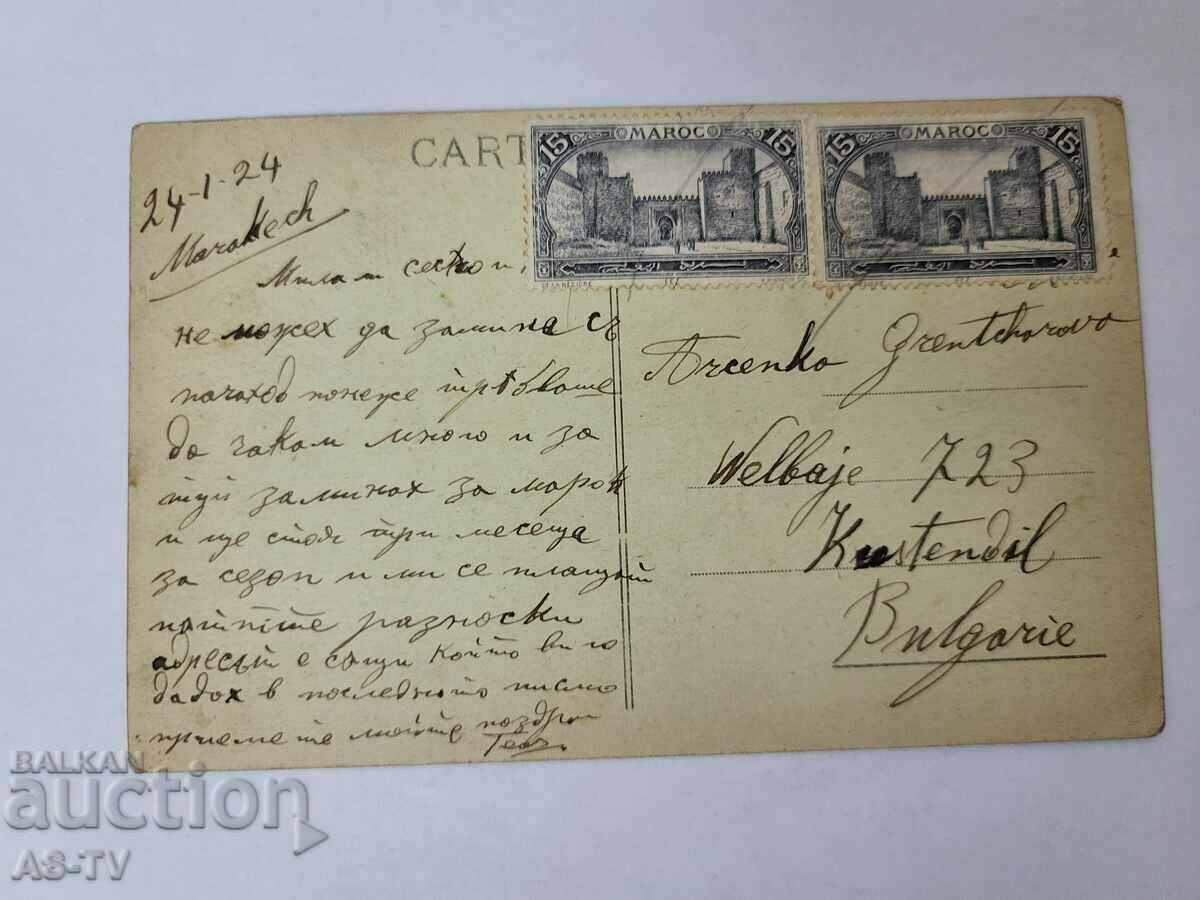 CART
24-1-24
Marakech
15 MAROC 15
15 MAROC 15
Мила ми
не можех да замина съ
понеже трѣбваше
да чакам много и за
туй заминах за Марок
и ще стоя три месеца
за сезон и ми се плащат
разноски
адресът е същи който ви го
дадох в последното писмо
приемете моите поздрави
Arcenko Grentcharova
Welbaje 723
Kustendil
Bulgarie
BALKAN
auction
AS-TV